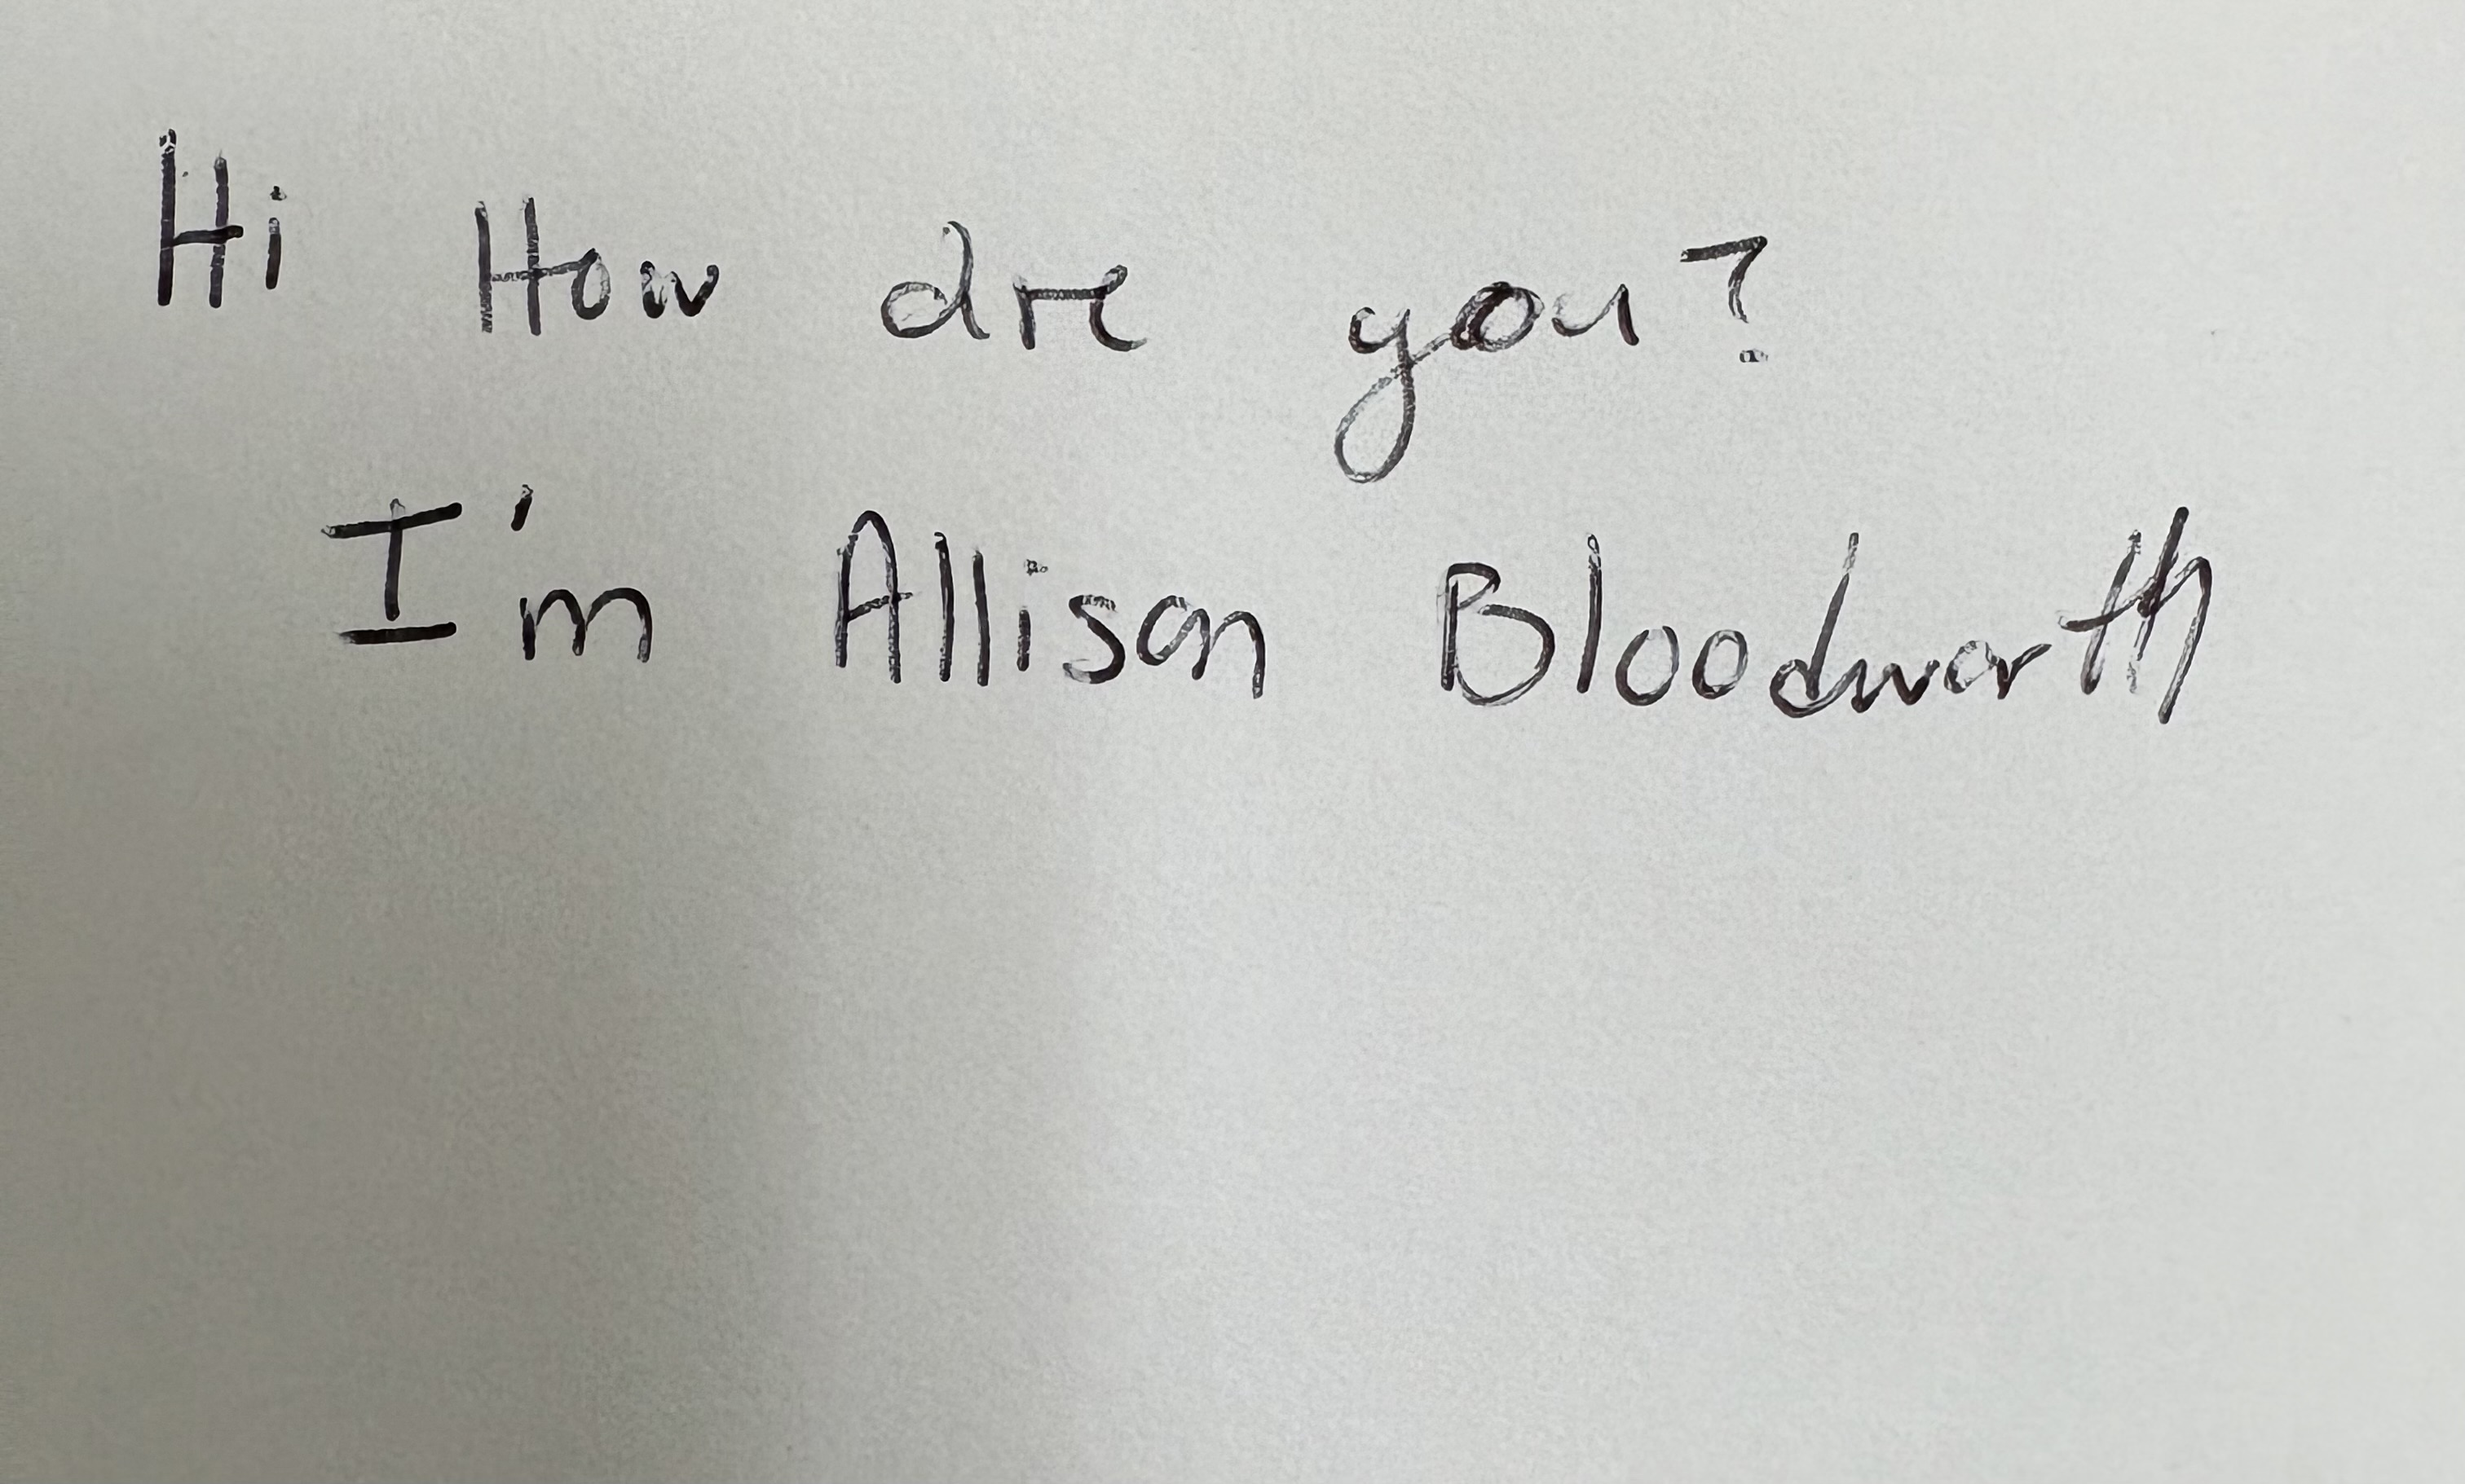 Hi How are you?
I'm Allison Bloodworth